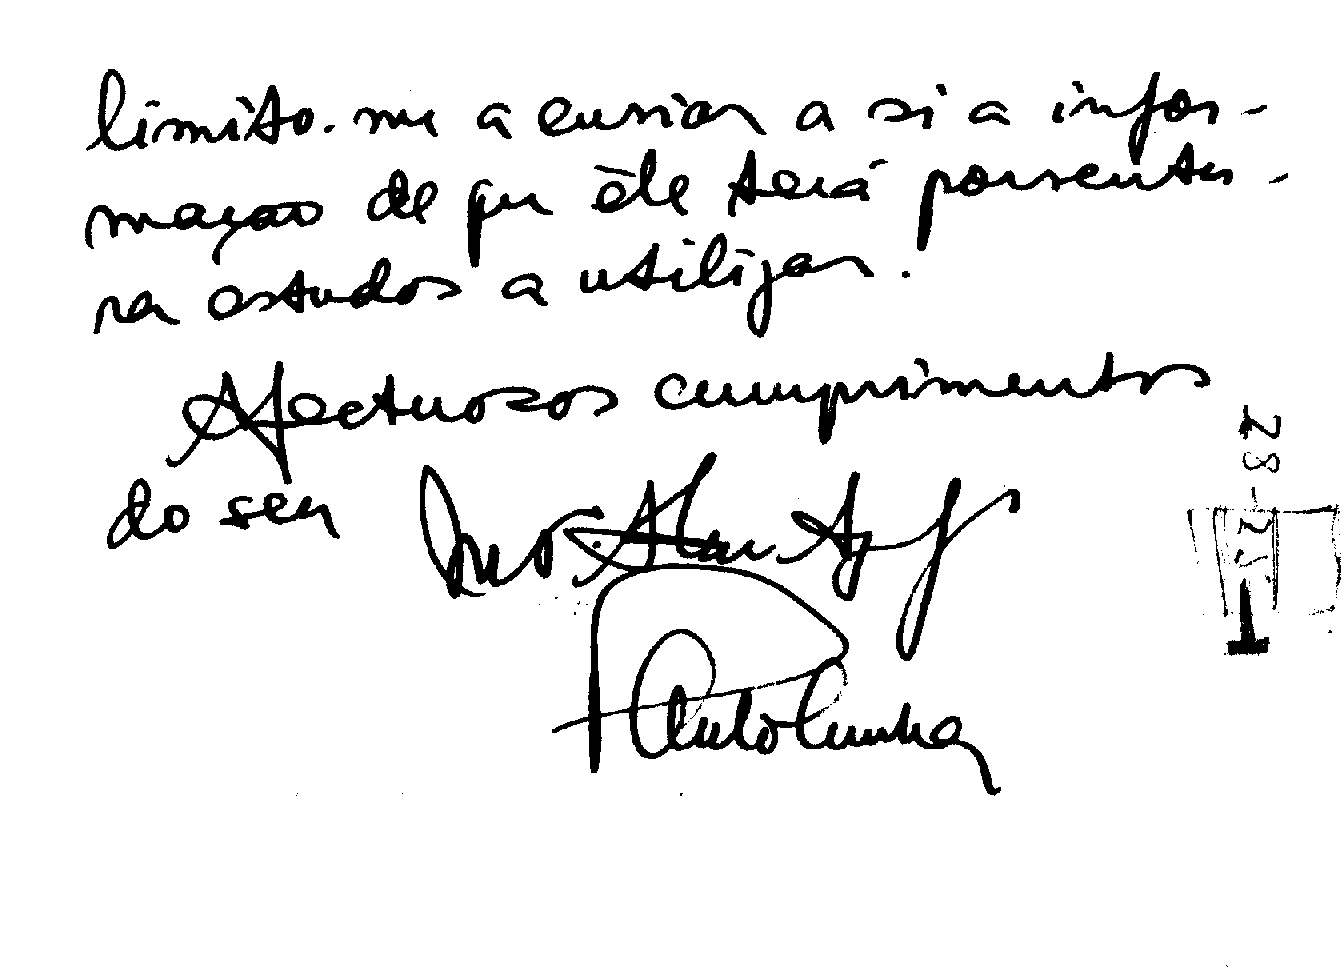 limito-me a enviar a si a infor-
mação de que êle terá porventu-
ra estudos a utilizar.
Afectuosos cumprimentos
do seu
Paulo Cunha
28-